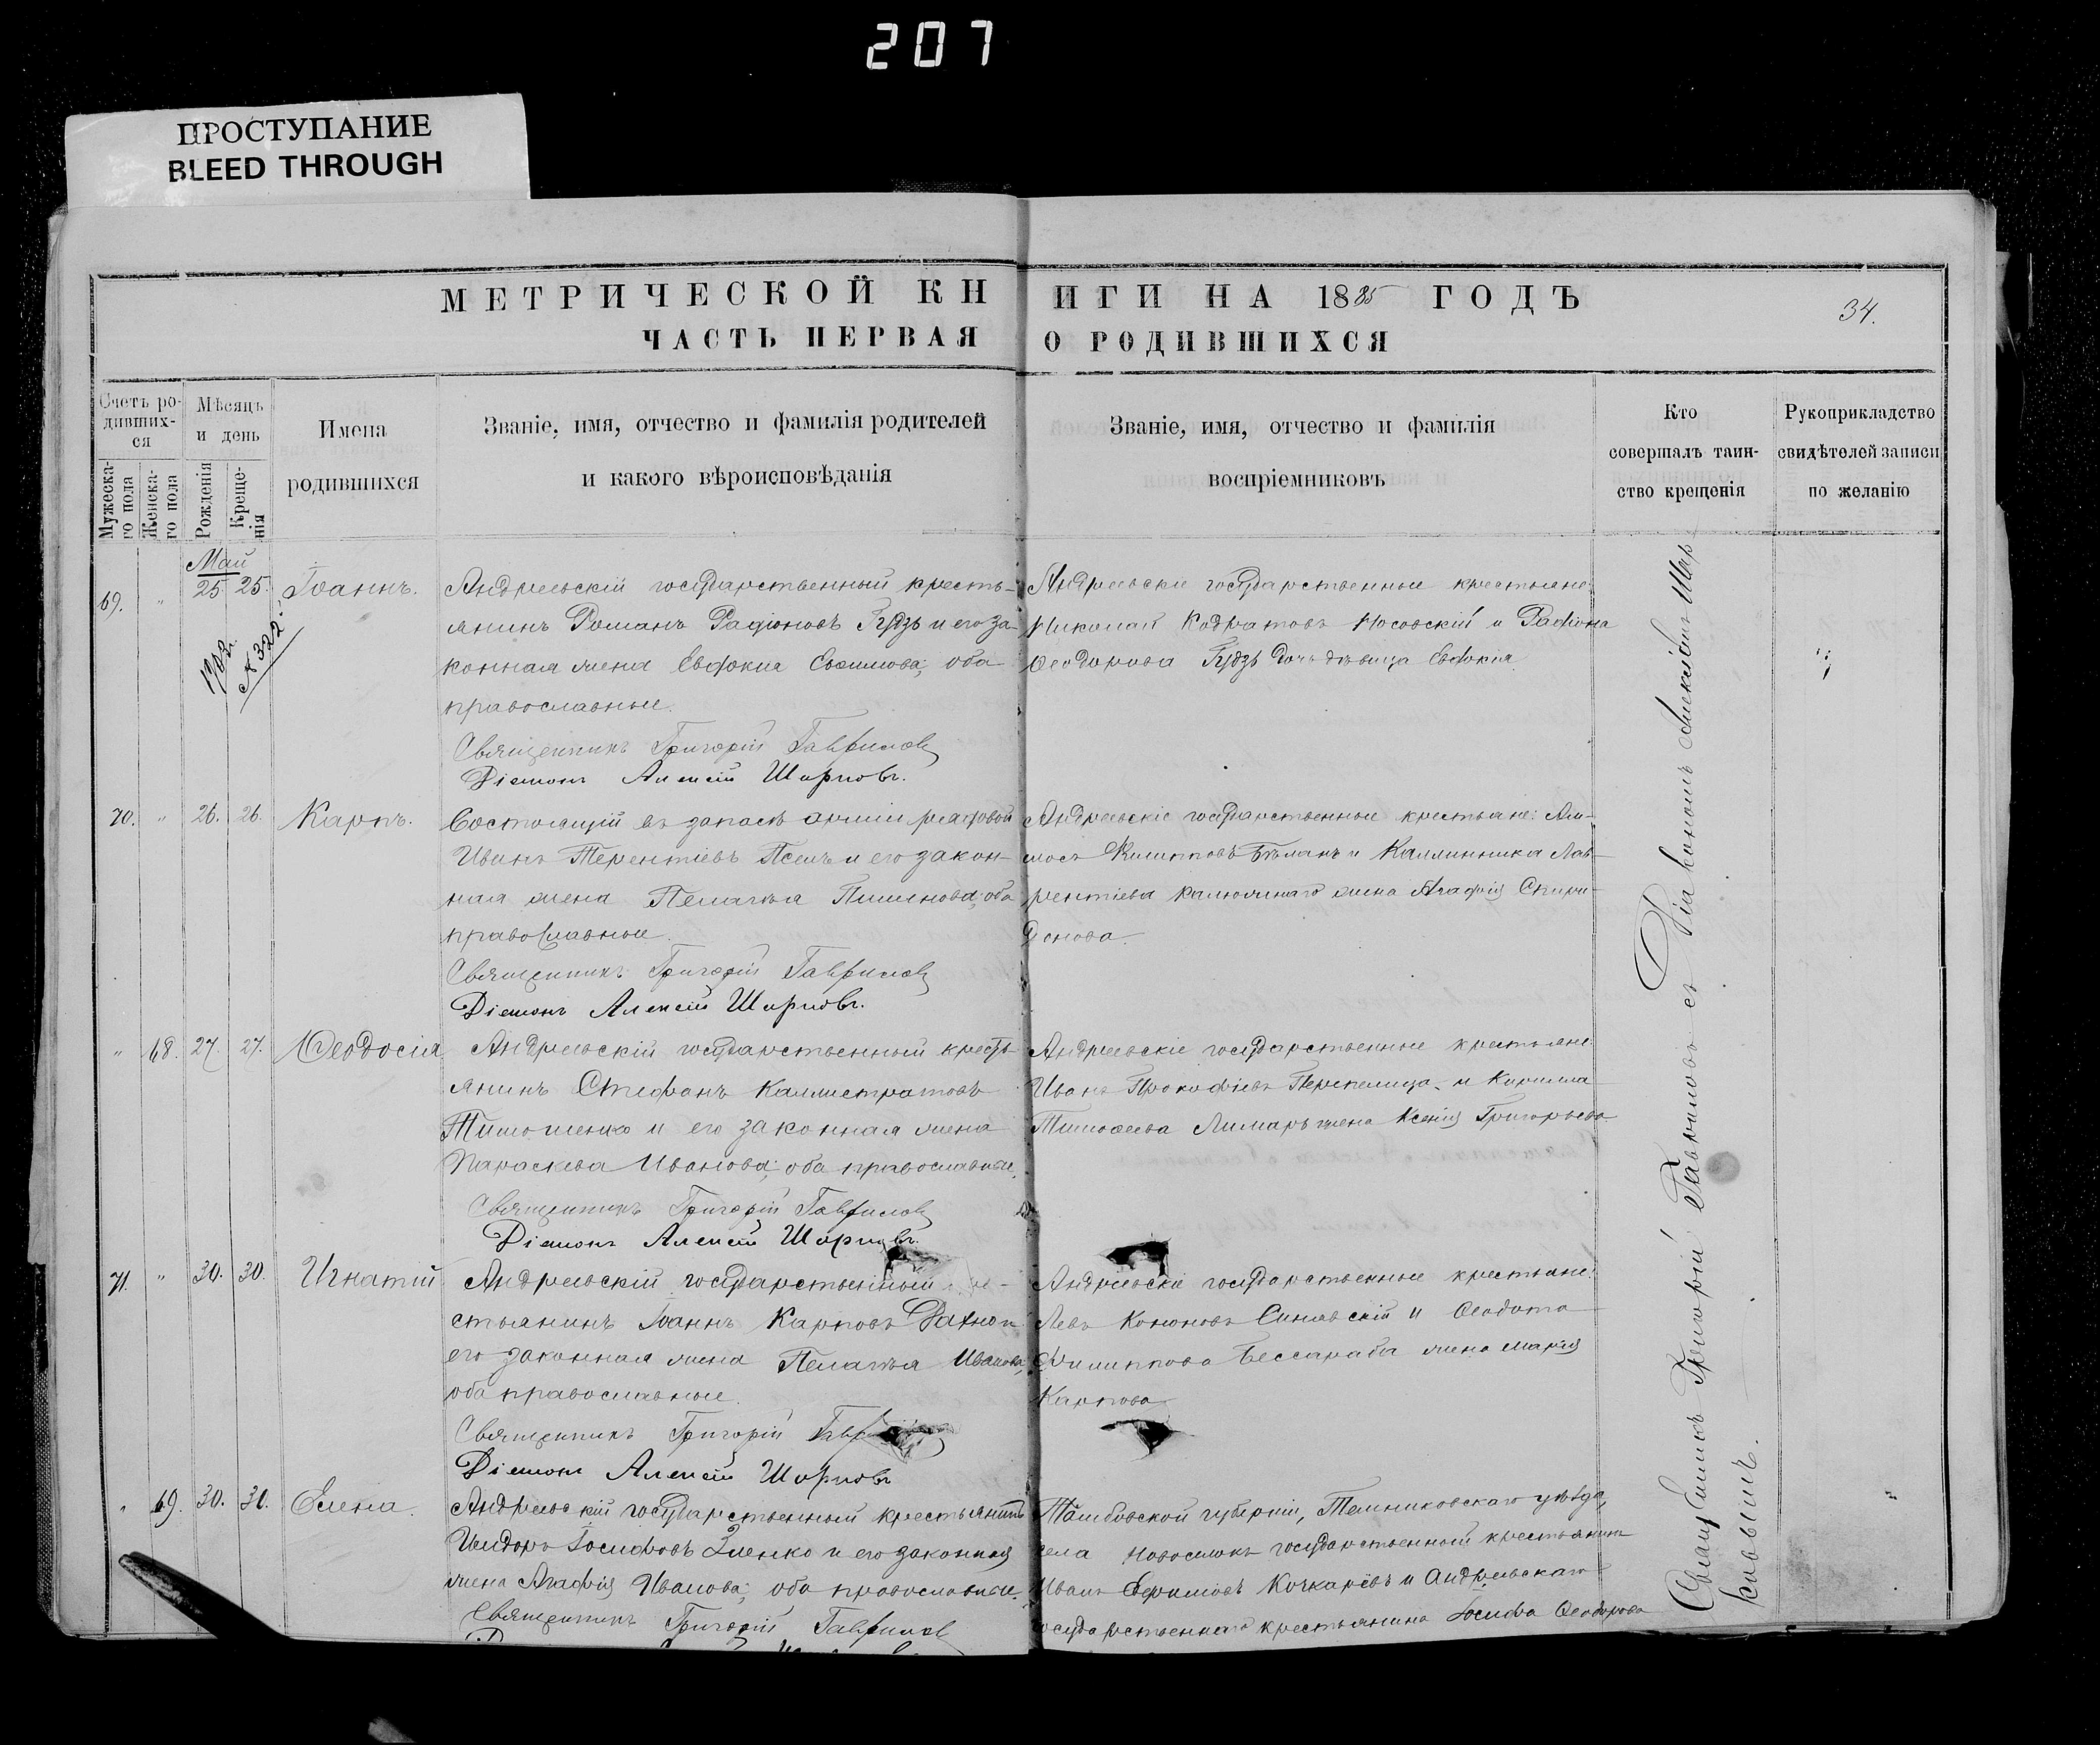 207
ПРОСТУПАНИЕ
BLEED THROUGH
МЕТРИЧЕСКОЙ КНИГИ НА 1885 ГОДЪ
34.
ЧАСТЬ ПЕРВАЯ О РОДИВШИХСЯ
Счетъ ро-
дивших-
ся
Мужеска-
го пола
Женска-
го пола
Мѣсяцъ
и день
Рожденія
Креще-
нія
Имена
родившихся
Званіе, имя, отчество и фамилія родителей
и какого вѣроисповѣданія
Званіе, имя, отчество и фамилія
воспріемниковъ
Кто
совершалъ таин-
ство крещенія
Рукоприкладство
свидѣтелей записи
по желанію
Май
69. " 25. 25. Іоаннъ.
№ 322
Андреевскій государственный кресть-
янинъ Романъ Радіоновъ Гудзь и его за-
конная жена Евдокия Евфимова; оба
православные.
Священникъ Григорій Гаврилов
Діаконъ Алексій
Андреевские государственные крестьяне:
Николай Кодратовъ Носовскій и Радіона
Ѳеодорова Гудзь дочь дѣвица Евдокія.
70. " 26. 26. Карпъ.
Состоящій въ запасѣ арміи рядовой
Иванъ Терентіевъ и его закон-
ная жена Пелагѣя Пименова; оба
православные.
Священникъ Григорій Гаврилов
Діаконъ Алексій
Андреевскіе государственные крестьяне:
и Каллинника Лав-
рентіева жена Агафія Спири-
донова.
" 68. 27. 27. Ѳеодосія
Андреевскій государственный кресть-
янинъ Стефанъ Каллистратовъ
Тимошенко и его законная жена
Параскева Иванова; оба православные.
Священникъ Григорій Гаврилов
Діаконъ Алексій
Андреевскіе государственные крестьяне
Иванъ Прокофіевъ Перепелица и Кирилла
Тимофеева Лимарь жена Ксенія Григорьева
71. " 30. 30. Игнатій
Андреевскій государственный кре-
стьянинъ Іоаннъ Карповъ и
его законная жена Пелагѣя Иванова;
оба православные.
Священникъ Григорій
Діаконъ Алексій
Андреевскіе государственные крестьяне:
Левъ Кононовъ Синявскій и Ѳеодота
Филиппова Бессараба жена Марія
Карпова
" 69. 30. 30. Елена.
Андреевскій государственный крестьянинъ
Исидоръ Іосифовъ и его законная
жена Агафія Иванова; оба православные.
Священникъ Григорій Гаврилов
Тамбовской губерніи, Темниковскаго уѣзда,
села государственный крестьянинъ
Иванъ Ефимовъ Кочкарёвъ и Андреевскаго
государственнаго крестьянина Іосифа Ѳеодорова
Священникъ Григорій Гавриловъ съ Діакономъ Алексіемъ Шар-
ковымъ.